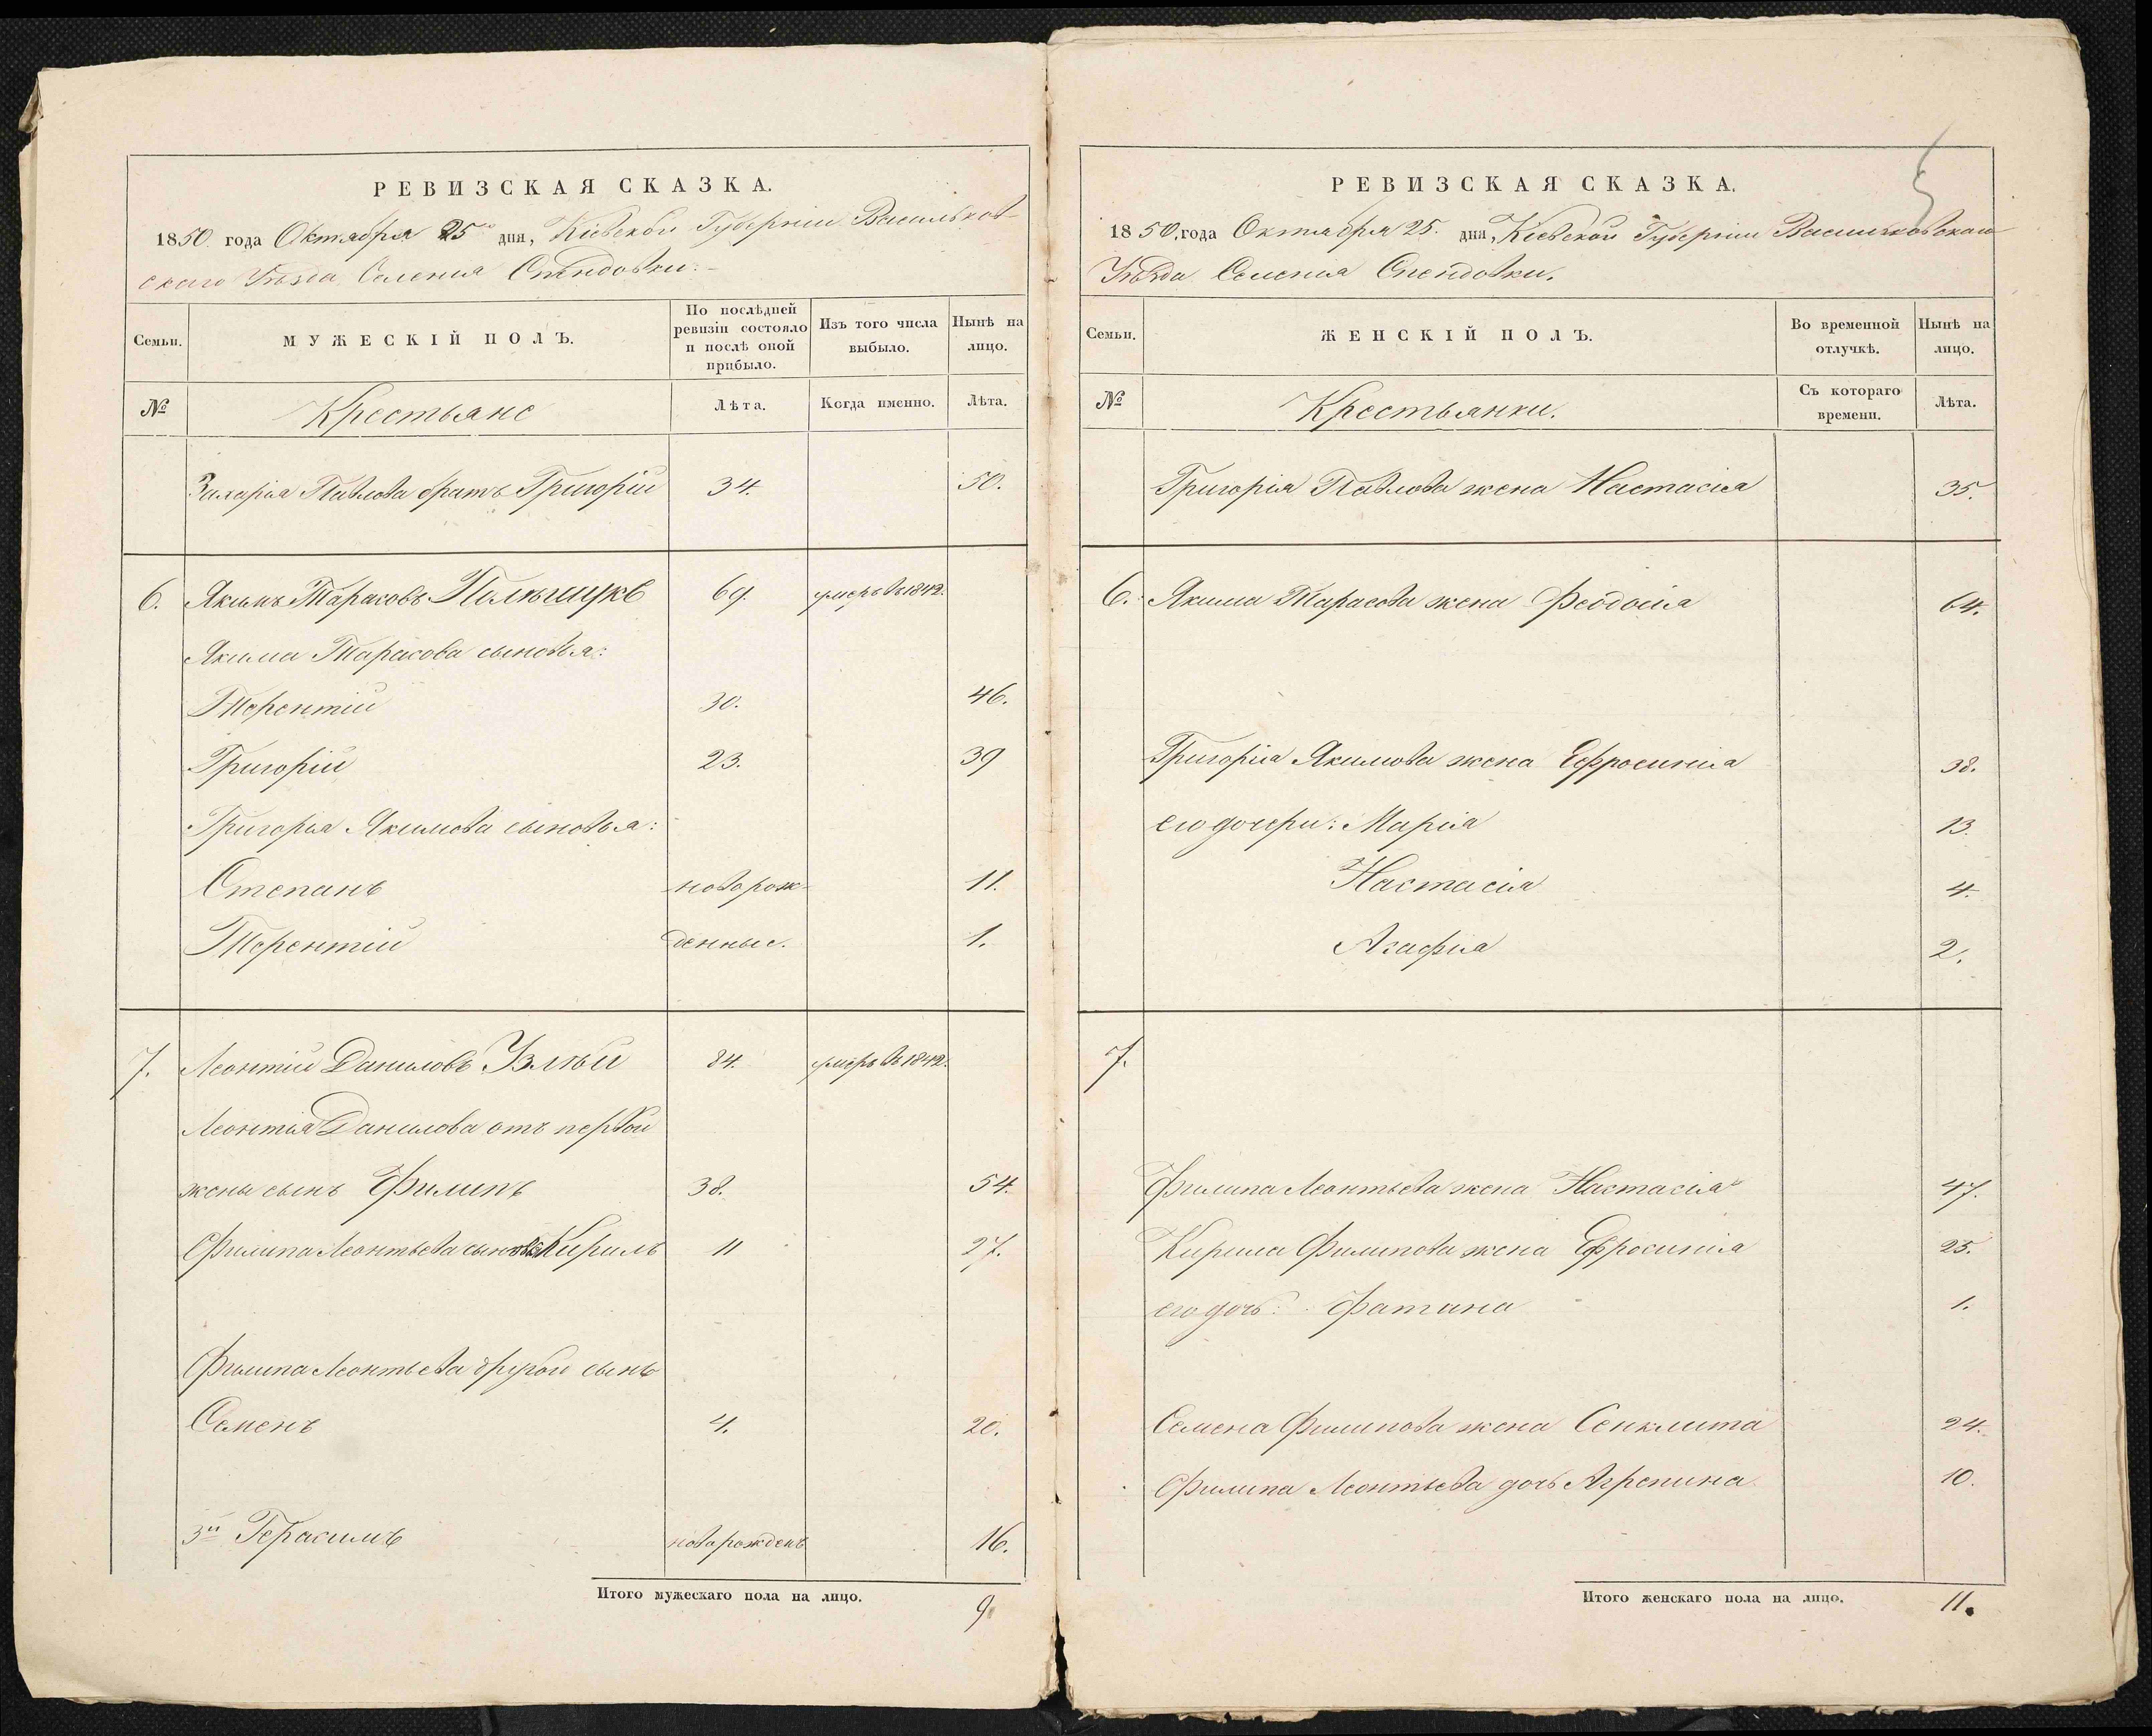 РЕВИЗСКАЯ СКАЗКА.
1850 года Октября 25 дня, Кіевской Губерніи Васильков-
скаго Уѣзда Селенія Спендовки.
Семьи.
МУЖЕСКІЙ ПОЛЪ.
По послѣдней ревизіи состояло и послѣ оной прибыло.
Изъ того числа выбыло.
Нынѣ на лицо.
№
Крестьяне
Лѣта.
Когда именно.
Лѣта.
Захарія Павлова братъ Григорій 34. 50.
6. Якимъ Тарасовъ 69. умеръ въ 1842.
Якима Тарасова сыновья:
Терентій 30. 46.
Григорій 23. 39
Григорія Якимова сыновья:
Степанъ новорож- 11.
Терентій денные. 1.
7. Леонтій Даниловъ 84. умеръ въ 1842.
Леонтія Данилова отъ первой
жены сынъ Филипъ 38. 54.
Филипа Леонтьева Кирилъ 11 27.
Филипа Леонтьева другой сынъ
Семенъ 4. 20.
3й Герасимъ новорожденъ 16.
Итого мужескаго пола на лицо. 9
5
РЕВИЗСКАЯ СКАЗКА.
1850 года Октября 25. дня, Кіевской Губерніи Васильковскаго
Уѣзда Селенія Спендовки.
Семьи.
ЖЕНСКІЙ ПОЛЪ.
Во временной отлучкѣ.
Нынѣ на лицо.
№
Крестьянки.
Съ котораго времени.
Лѣта.
Григорія Павлова жена Настасія 35.
6. Якима Тарасова жена Феодосія 64.
Григорія Якимова жена Ефросинія 38.
его дочери: Марія 13.
Настасія 4.
Агафія 2.
7.
Филипа Леонтьева жена Настасія 47.
Кирила Филипова жена Ефросинія 25.
его дочь: Фатина 1.
Семена Филипова жена Сенклита 24.
Филипа Леонтьева дочь Агрепина 10.
Итого женскаго пола на лицо. 11.